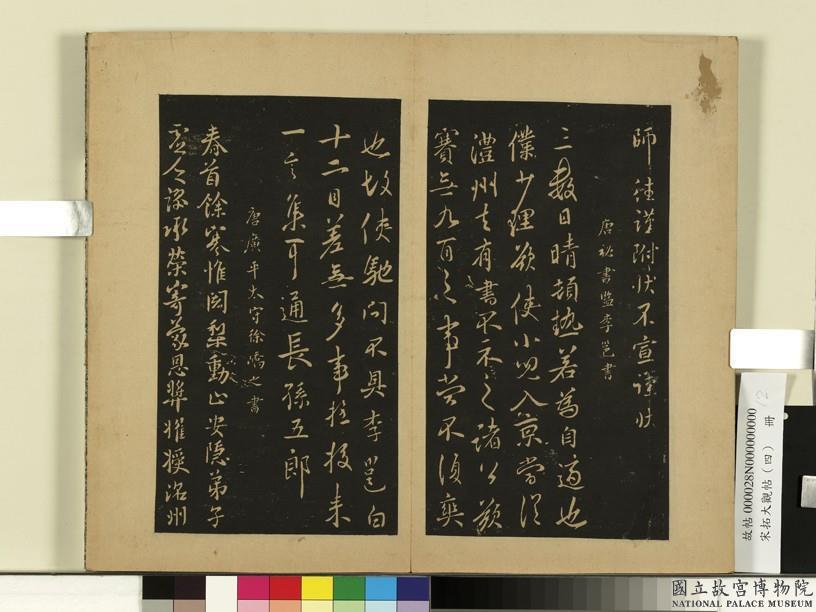 師 住謹附狀不宣謹狀
唐秘書監李邕書
三數日晴頓熱若為自適也
僕少理欲使小兒入京當從
澧州去有書不示之諸公欲
賽無九百之事當不復奕
也故使馳問不具李邕白
十二日差無多事投報未
一言集可通長孫五郎
唐廣平太守徐嶠之書
春首餘寒惟闍梨動止安隱弟子
蒙恩獎擢授洺州
故帖000028N000000000
宋拓大觀帖(四) 冊
12
國立故宮博物院
NATIONAL PALACE MUSEUM